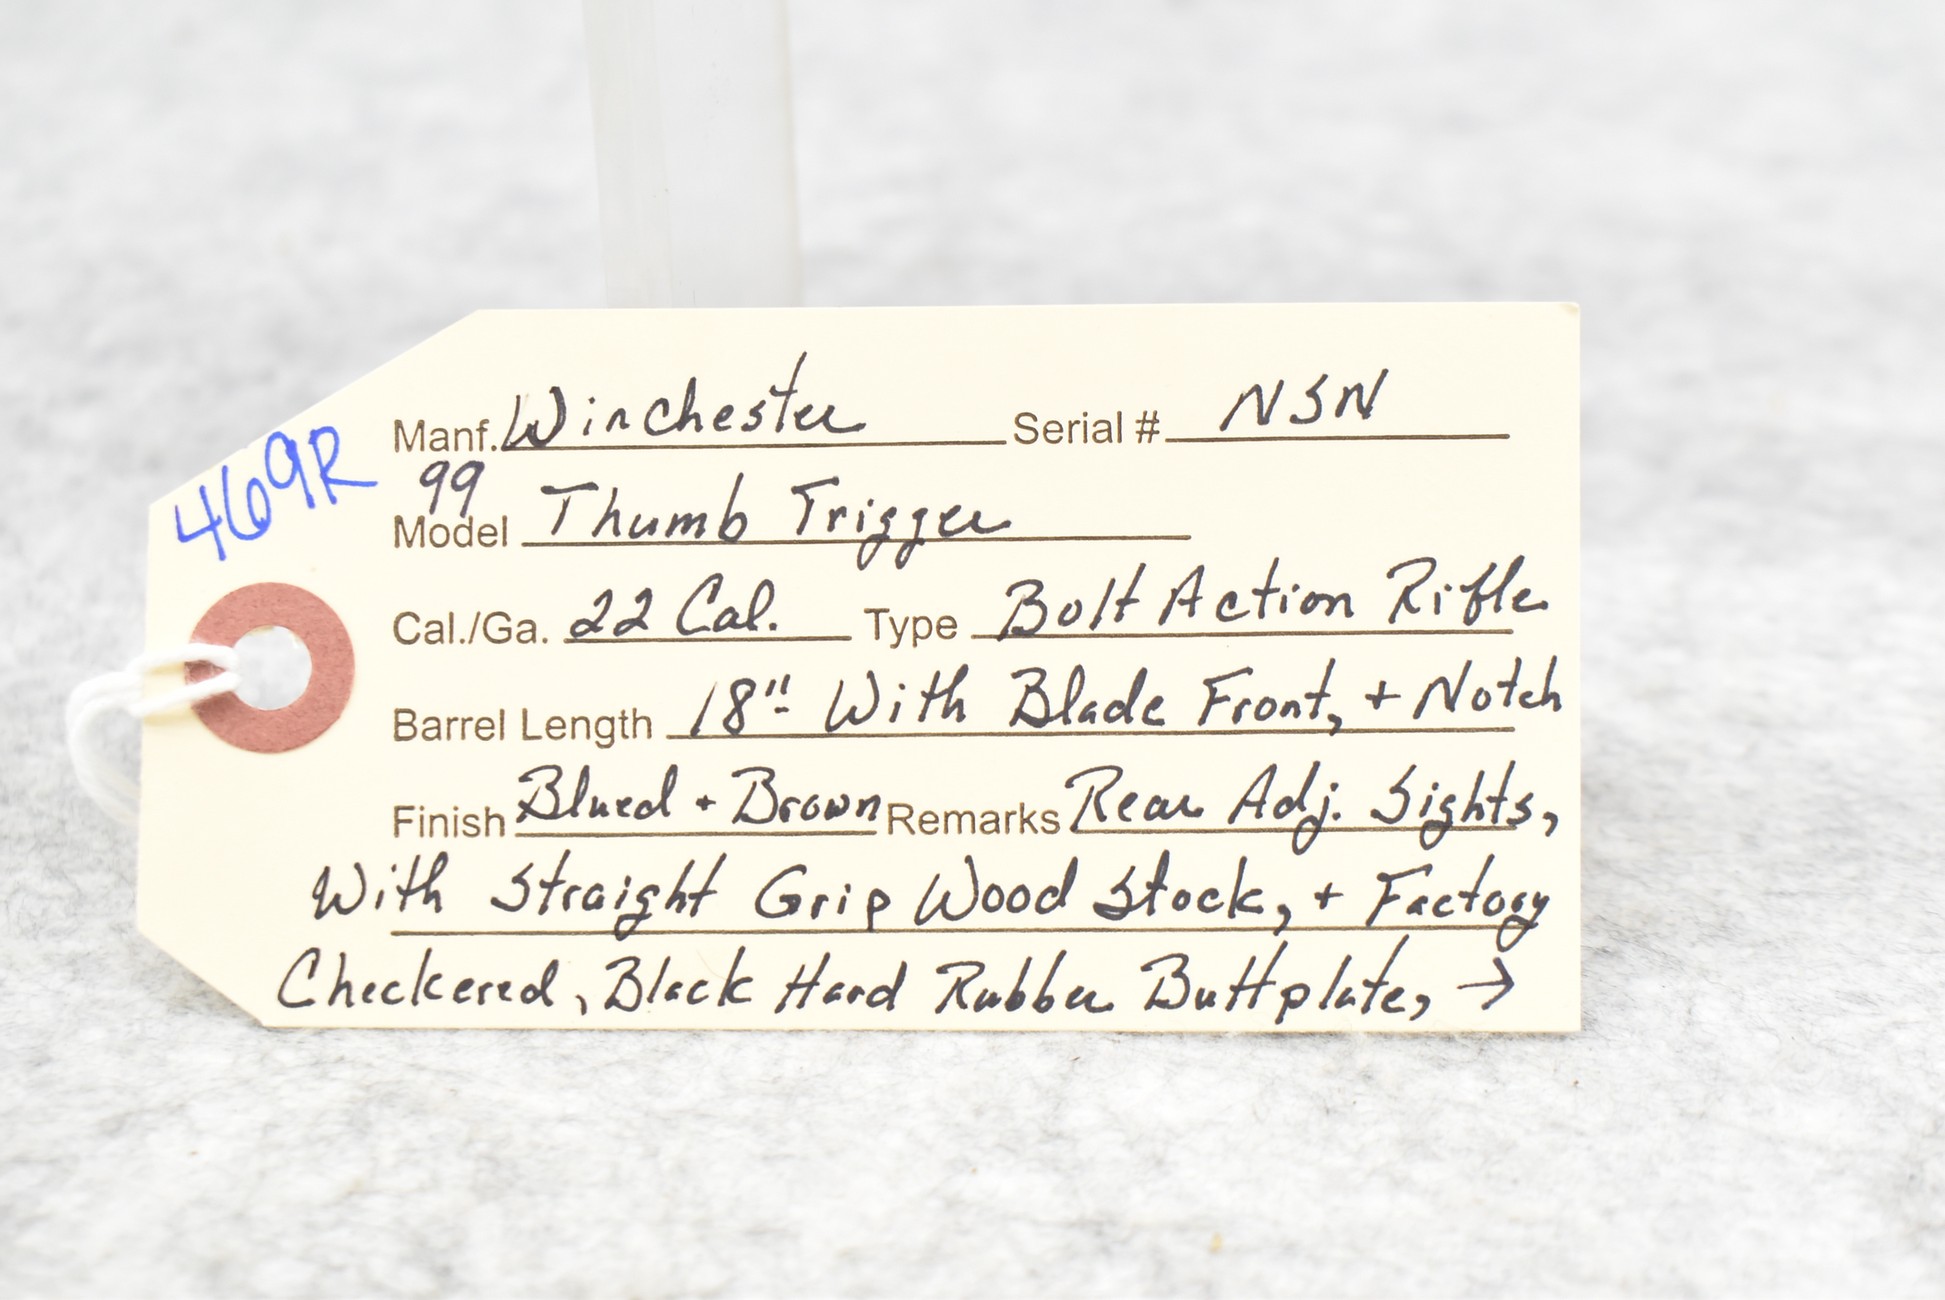 469R
Manf. Winchester Serial # NSN
99
Model Thumb Trigger
Cal./Ga. 22 Cal. Type Bolt Action Rifle
Barrel Length 18" With Blade Front, + Notch
Finish Blued + Brown Remarks Rear Adj. Sights,
With Straight Grip Wood Stock, + Factory
Checkered, Black Hard Rubber Buttplate, →